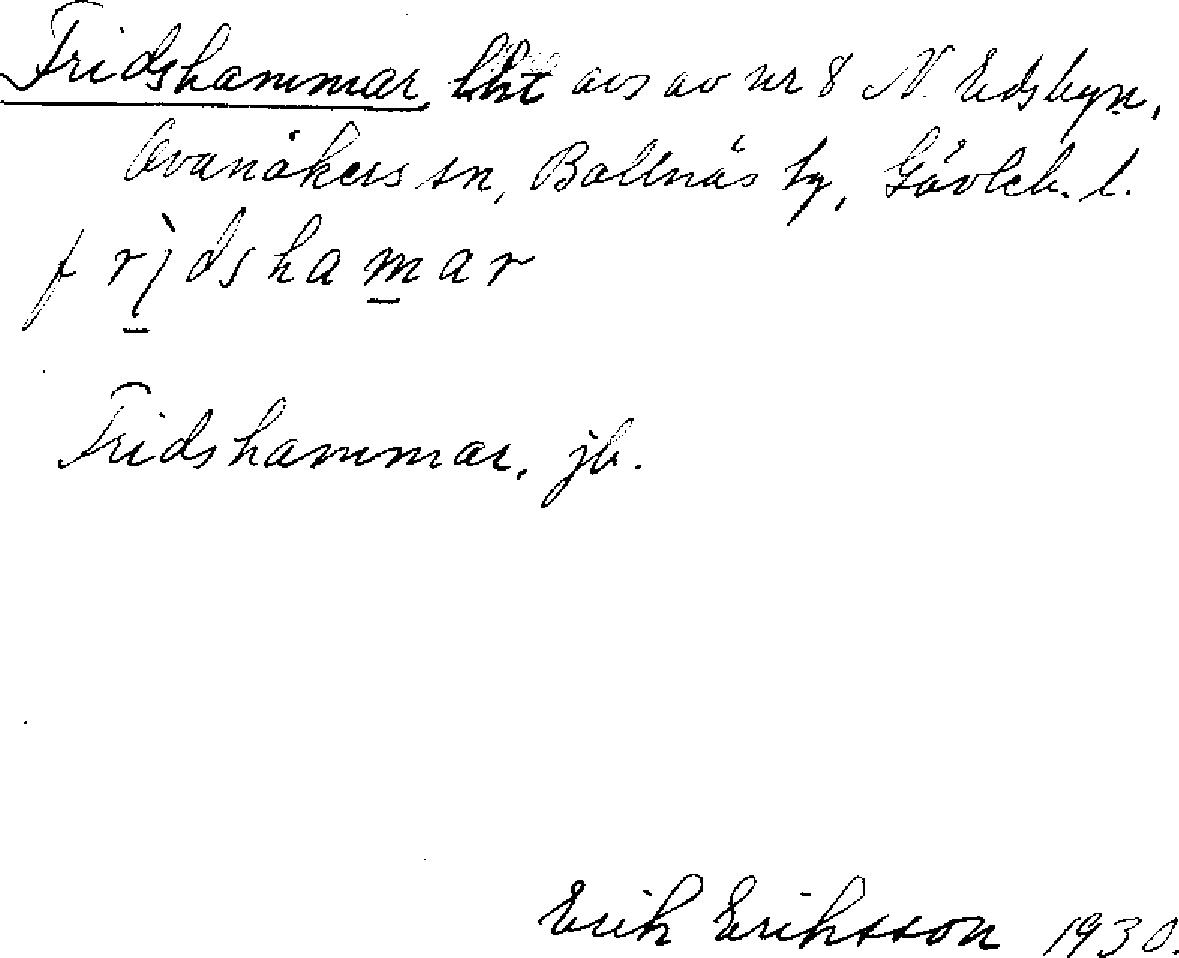 Fridshammar, lht avs av nr 8 N. Edsbyn,
Ovanåkers sn, Bollnäs tg, Gävleb. l.
frìdshamar
Fridshammar, jb.
Erik Eriksson 1930.